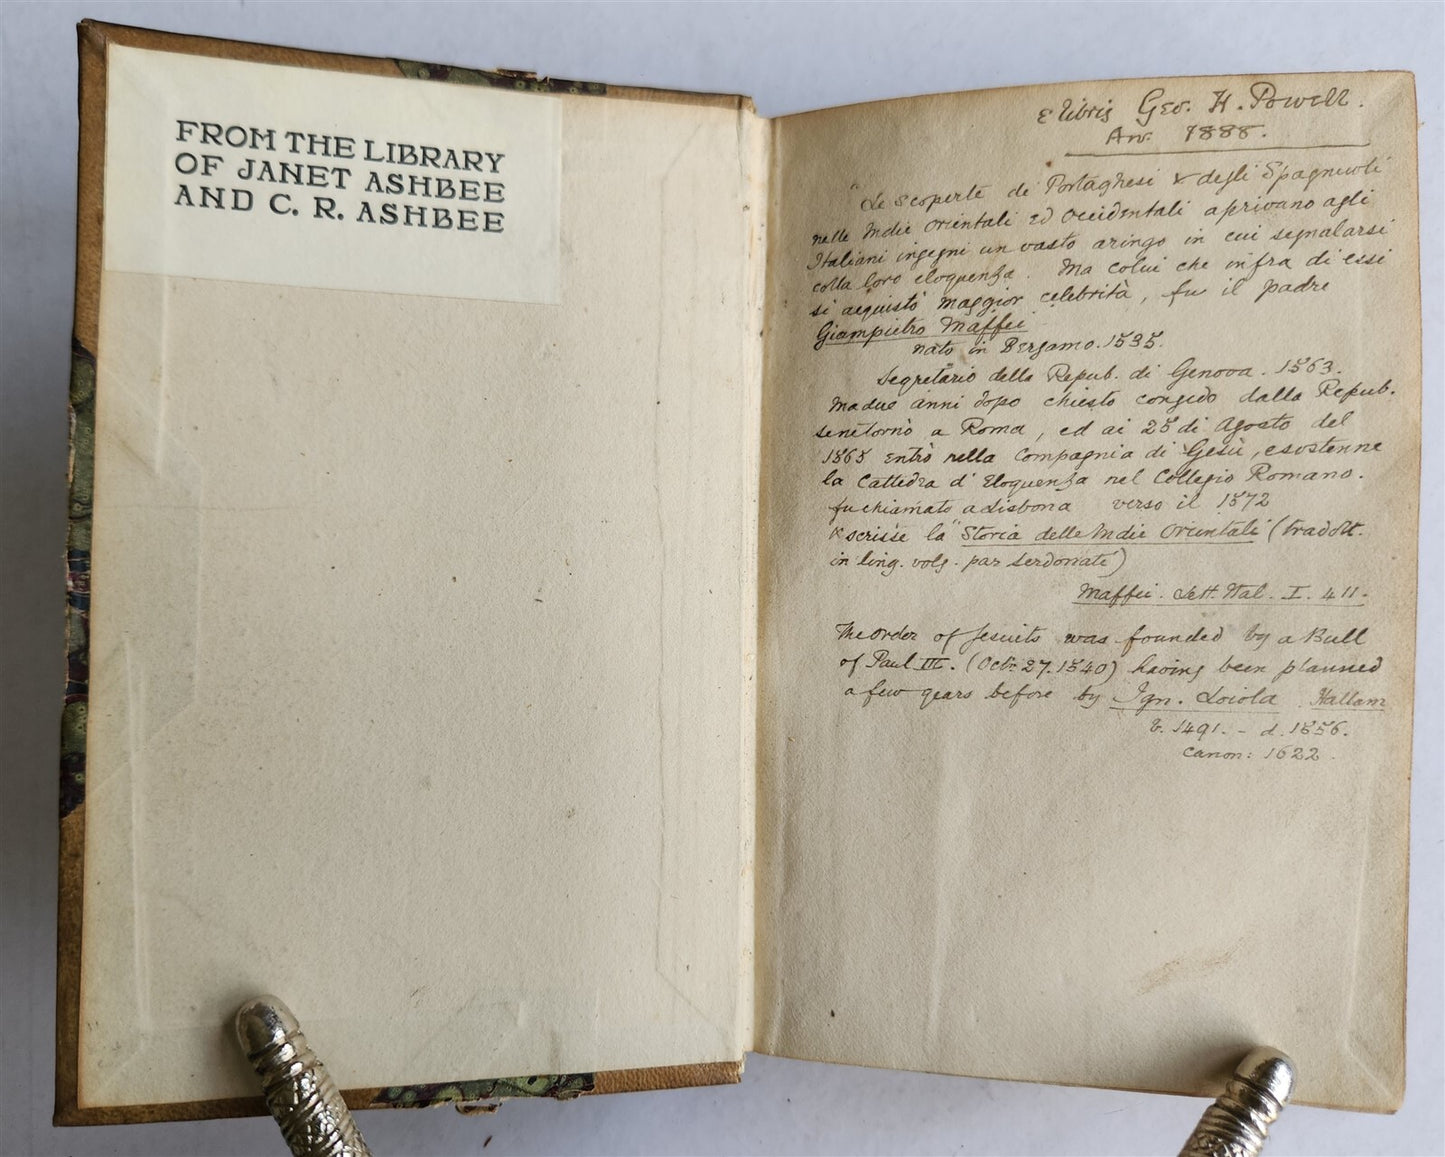 FROM THE LIBRARY
OF JANET ASHBEE
AND C. R. ASHBEE
E libris Geo. H. Powell.
An. 1888.
"Le scoperte de' Portoghesi & degli Spagnuoli
nelle Indie Orientali ed Occidentali aprivano agli
Italiani ingegni un vasto aringo in cui segnalarsi
colla loro eloquenza. Ma colui che infra di essi
si acquistò maggior celebrità, fu il padre
Giampietro Maffei
nato in Bergamo. 1535.
Segretario della Repub. di Genova. 1563.
ma due anni dopo chiesto congedo dalla Repub.
sene tornò a Roma, ed ai 25 di Agosto del
1565 entrò nella Compagnia di Gesù, e sostenne
la Cattedra d' Eloquenza nel Collegio Romano.
fu chiamato a Lisbona verso il 1572
& scrisse la "Storia delle Indie Orientali" (tradott.
in ling. volg. par Serdonati)
Maffei. Lett. Ital. I. 411.
The order of Jesuits was founded by a Bull
of Paul III. (Octr. 27. 1540) having been planned
a few years before by Ign. Loiola Hallam
b. 1491. - d. 1556.
Canon: 1622.